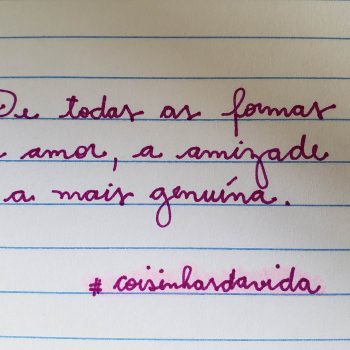 De todas as formas
amor, a amizade
a mais genuína.
# coisinhasdavida